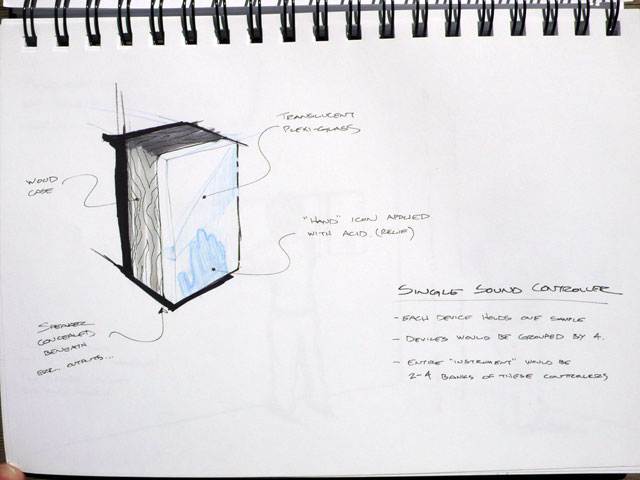 TRANSLUCENT
PLEXI-GLASS
WOOD
CASE
"HAND" ICON APPLIED
WITH ACID. (RELIEF)
SPEAKER
CONCEALED
BENEATH
ERR... OUTPUTS...
SINGLE SOUND CONTROLLER
- EACH DEVICE HOLDS ONE SAMPLE
- DEVICES WOULD BE GROUPED BY 4.
- ENTIRE "INSTRUMENT" WOULD BE
2-4 BANKS OF THESE CONTROLLERS